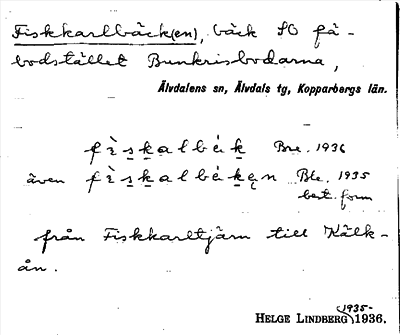 Fiskkarlbäck(en), bäck SO fä-
bodstället Bunkrisbodarna,
Älvdalens sn, Älvdals tg, Kopparbergs län.
fìs̱ḵalbék Bre. 1936
även fìs̱ḵalbéḵęn Ble. 1935
best. form
från Fiskkarltjärn till Kälk-
ån.
1935-
HELGE LINDBERG 1936.